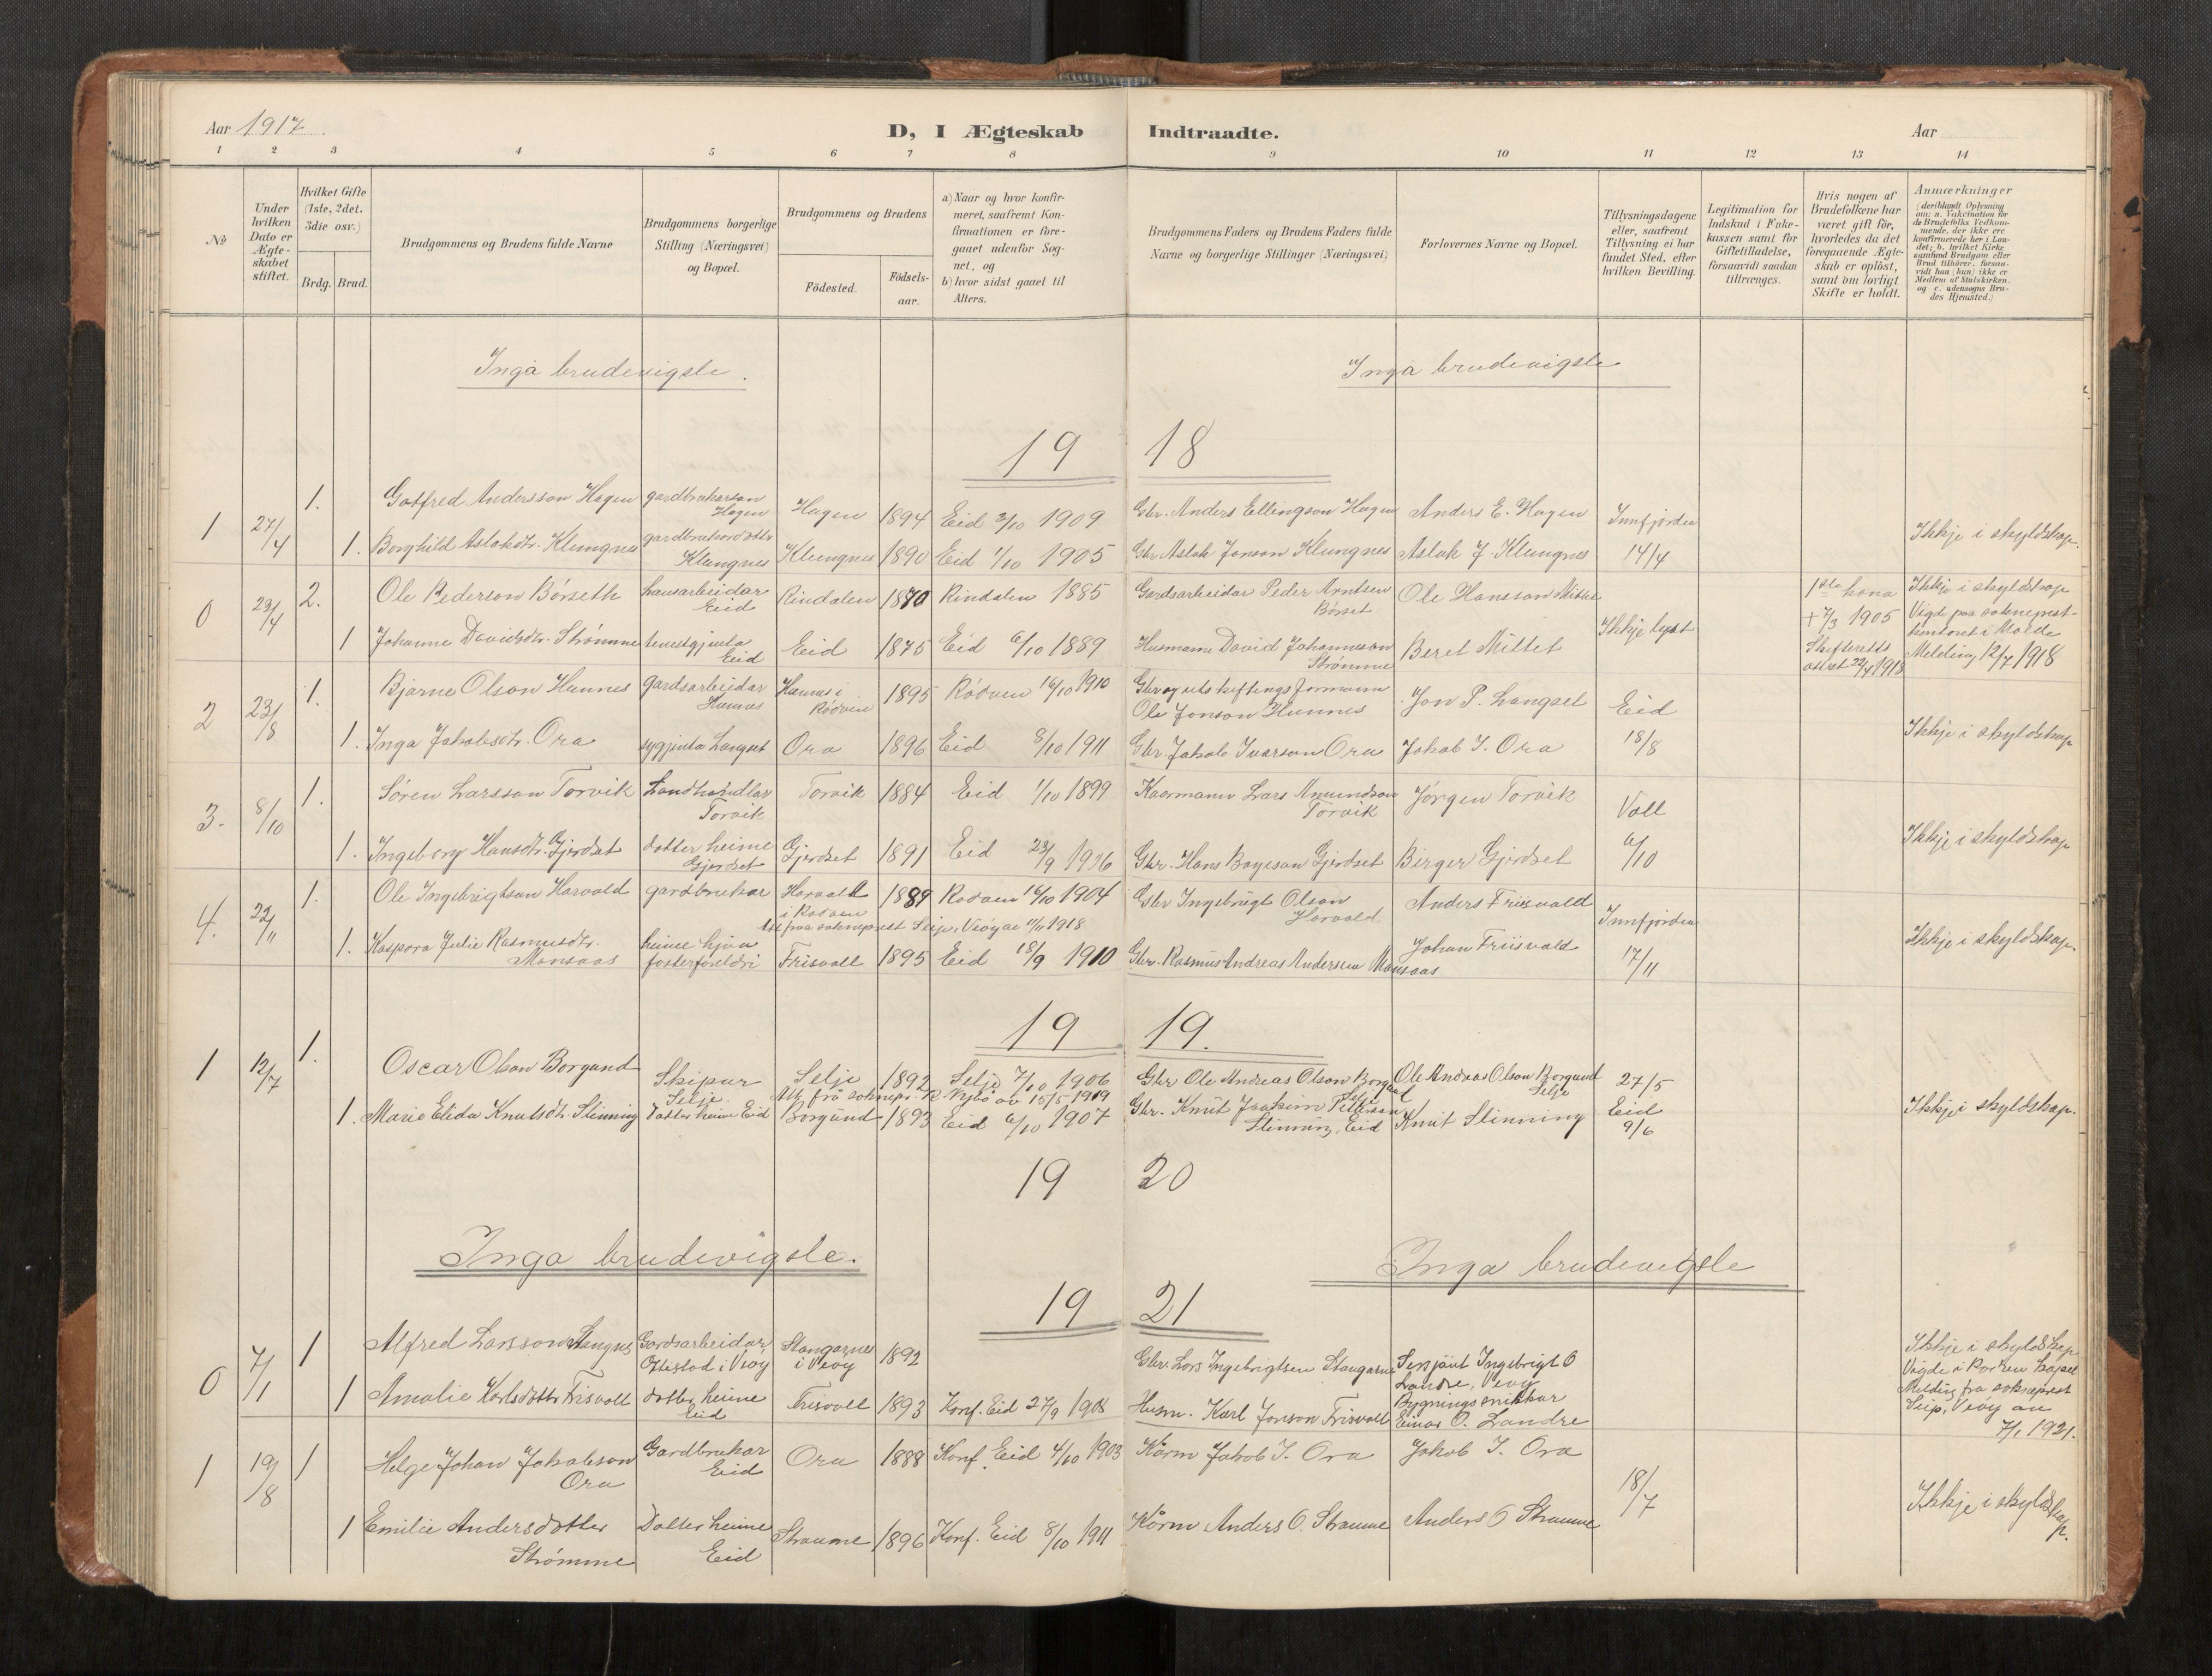 Aar 1917.
D, I Ægteskab Indtraadte.
Aar
1 2 3 4 5 6 7 8 9 10 11 12 13 14
№
Under hvilken Dato er Ægteskabet stiftet.
Hvilket Gifte (1ste, 2det, 3die osv.)
Brdg. Brud.
Brudgommens og Brudens fulde Navne
Brudgommens borgerlige Stilling (Næringsvei) og Bopæl.
Brudgommens og Brudens
Födested.
Födselsaar.
a) Naar og hvor konfirmeret, saafremt Konfirmationen er foregaaet udenfor Sognet, og
b) hvor sidst gaaet til Alters.
Brudgommens Faders og Brudens Faders fulde Navne og borgerlige Stillinger (Næringsvei)
Forlovernes Navne og Bopæl.
Tillysningsdagene eller, saafremt Tillysning ei har fundet Sted, efter hvilken Bevilling.
Legitimation for Indskud i Enkekassen samt for Giftetilladelse, forsaavidt saadan tiltrænges.
Hvis nogen af Brudefolkene har været gift för, hvorledes da det foregaaende Ægteskab er oplöst, samt om lovligt Skifte er holdt.
Anmærkninger (deriblandt Oplysning om: a. Vakcination for de Brudefolks Vedkommende, der ikke ere konfirmerede her i Landet; b. hvilket Kirkesamfund Brudgom eller Brud tilhörer, forsaavidt han (hun) ikke er Medlem af Statskirken, og c. udensogns Brudes Hjemsted.)
Inga brudevigsle. Inga brudevigsle
19 18
1 27/4 1. Gotfred Andersson Hagen gardbrukarson Hagen Hagen 1894 Eid 3/10 1909 Gbr. Anders Ellingson Hagen Anders E. Hagen Innfjorden
1. Borghild Aslaksdtr. Klungnes gardbrukardotter Klungnes Klungnes 1890 Eid 1/10 1905 Gbr Aslak Jonson Klungnes Aslak J. Klungnes 14/4 Ikkje i skyldskap.
0 23/4 2. Ole Pederson Børseth hausarbeidar Eid Rindalen 1870 Rindalen 1885 Gardsarbeidar Peder Arntsen Børset Ole Hansson Mittet Ikkje lyst 1ste kona + 7/3 1905 Skifteretts attest 22/4 1918 Ikkje i skyldskap Vigde paa sokneprestkontoret i Molde Melding 12/7 1918
1 Johanne Davidsdtr. Strømme tenestgjenta Eid Eid 1875 Eid 6/10 1889 Husmann David Johannesson Strømme Beret Mittet
2 23/8 1. Bjarne Olson Hunnes gardsarbeidar Hunnes Hunnes i Rødven 1895 Rødven 16/10 1910 Gbr og utskiftingsformann Ole Jonson Hunnes Jon P. Langset Eid
1. Inga Jakobsdtr. Ora sygjenta Langset Ora 1896 Eid 8/10 1911 Gbr. Jakob Ivarson Ora Jakob I. Ora 18/8 Ikkje i skyldskap
3. 8/10 1. Søren Larsson Torvik Landhandlar Torvik Torvik 1884 Eid 1/10 1899 Kaarmann Lars Amundson Torvik Jørgen Torvik Voll
1. Ingeborg Hansdtr. Gjerdset dotter heime Gjerdset Gjerdset 1891 Eid 23/9 1906 Gbr. Hans Bayeson Gjerdset Birger Gjerdset 6/10 Ikkje i skyldskap
4. 22/11 1. Ole Ingebrigtson Harvold gardbrukar Harvold i Rødven 1889 Rødven 16/10 1904 Gbr Ingebrigt Olson Harvold Anders Frisvold Innfjorden
Att. fraa sokneprest Seip, Veøy av 11/11 1918
1. Kaspara Julie Rasmusdtr. Monsaas heime hjaa fosterforeldri Frisvoll 1895 Eid 18/9 1910 Gbr. Rasmus Andreas Andersen Monsaas Johan Friisvold 17/11 Ikkje i skyldskap.
19 19.
1 12/7 1. Oscar Olson Borgund Skipar Selje. Selje 1892 Selje 7/10 1906 Gbr Ole Andreas Olson Borgund Selje Ole Andreas Olson Borgund Selje 27/5
Att. frå sokenepr. R. Nybø av 15/5 1919
1. Marie Elida Knutsdtr. Slinning Dotter heime Eid Borgund 1893 Eid 6/10 1907 Gbr. Knut Joakim Petterson Slinning, Eid Knut Slinning Eid 9/6 Ikkje i skyldskap.
19 20
Inga brudevigsle. Inga brudevigsle
19 21
0 7/1 1 Alfred Larsson Stangnes Gardsarbeidar, Ottestad i Veøy Stangarnes i Veøy 1892 Gbr. Lars Ingebrigtsen Stangarnes Sersjant Ingebrigt O Landre, Veøy Ikkje i skyldskap Vigde i Rødven kapell Melding fra sokneprest Seip, Veøy av 7/1 1921.
1 Amalie Karlsdotter Frisvoll dotter heime Eid Frisvoll 1893 Konf. Eid 27/9 1908 Husm. Karl Jonson Frisvoll Bygningssnikkar Einar O. Landre
1 19/8 1 Helge Johan Jakobson Ora Gardbrukar Eid Ora 1888 Konf. Eid 4/10 1903 Kårm Jakob I. Ora Jakob I. Ora
18/7
1 Emilie Andersdotter Strømme Dotter heime Eid Straume 1896 Konf. Eid 8/10 1911 Kårm Anders O. Straume Anders O Straume Ikkje i skyldskap.